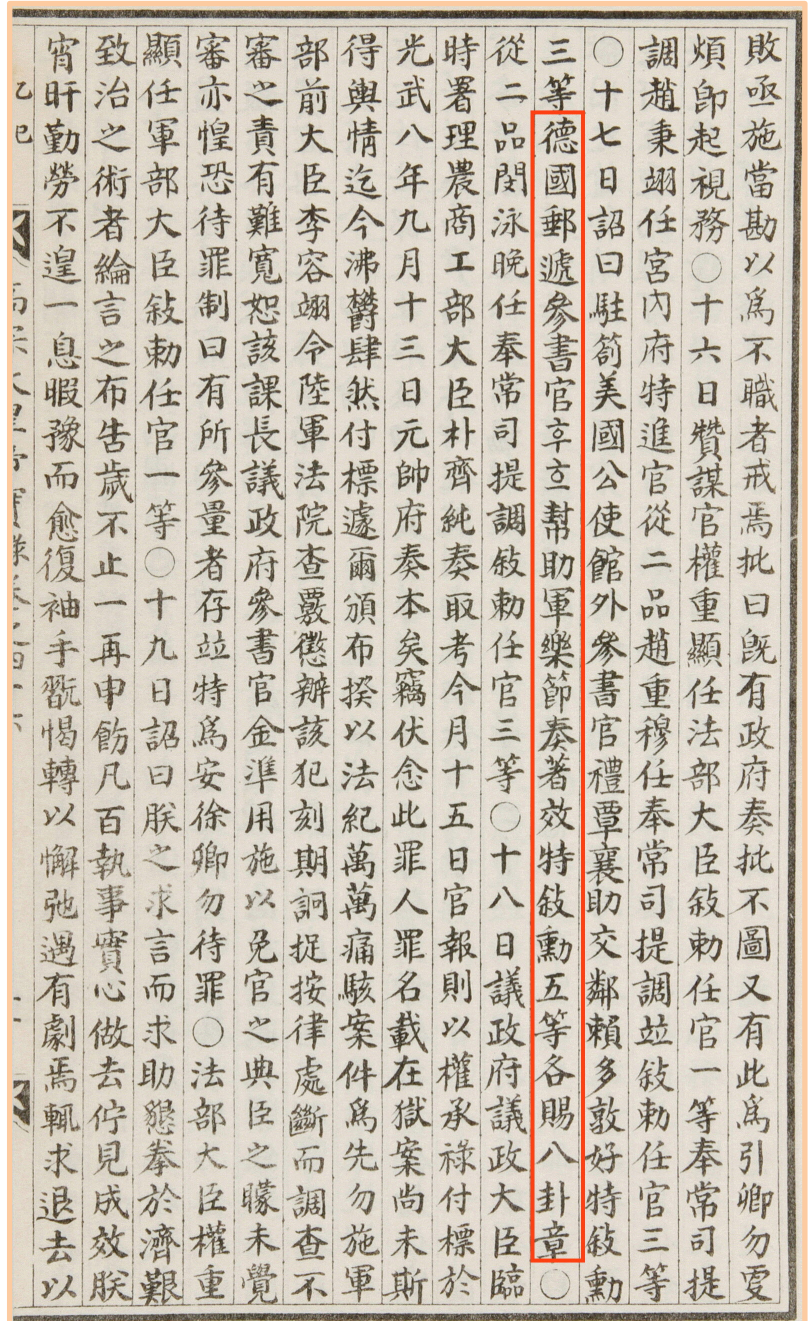 敗亟施當勘以爲不職者戒焉批曰旣有政府奏批不圖又有此爲引卿勿更
煩卽起視務〇十六日贊謀官權重顯任法部大臣敍勅任官一等奉常司提
調趙秉翊任宮內府特進官從二品趙重穆任奉常司提調竝敍勅任官三等
〇十七日詔曰駐箚美國公使館外參書官禮覃襄助交鄰賴多敦好特敍勳
三等德國郵遞參書官幫助軍樂節奏著效特敍勳五等各賜八卦章〇
從二品閔泳晩任奉常司提調敍勅任官三等〇十八日議政府議政大臣臨
時署理農商工部大臣朴齊純奏取考今月十五日官報則以權承祿付標於
光武八年九月十三日元帥府奏本矣竊伏念此罪人罪名載在獄案尙未斯
得輿情迄今沸鬱肆然付標遽爾頒布揆以法紀萬萬痛駭案件爲先勿施軍
部前大臣李容翊令陸軍法院查覈懲辦該犯刻期詗捉按律處斷而調查不
審之責有難寬恕該課長議政府參書官金準用施以免官之典臣之矇未覺
審亦惶恐待罪制曰有所參量者存竝特爲安徐卿勿待罪〇法部大臣權重
顯任軍部大臣敍勅任官一等〇十九日詔曰朕之求言而求助懇拳於濟艱
致治之術者綸言之布告歲不止一再申飭凡百執事實心做去佇見成效朕
宵旰勤勞不遑一息暇豫而愈復袖手翫愒轉以懈弛遇有劇焉輒求退去以